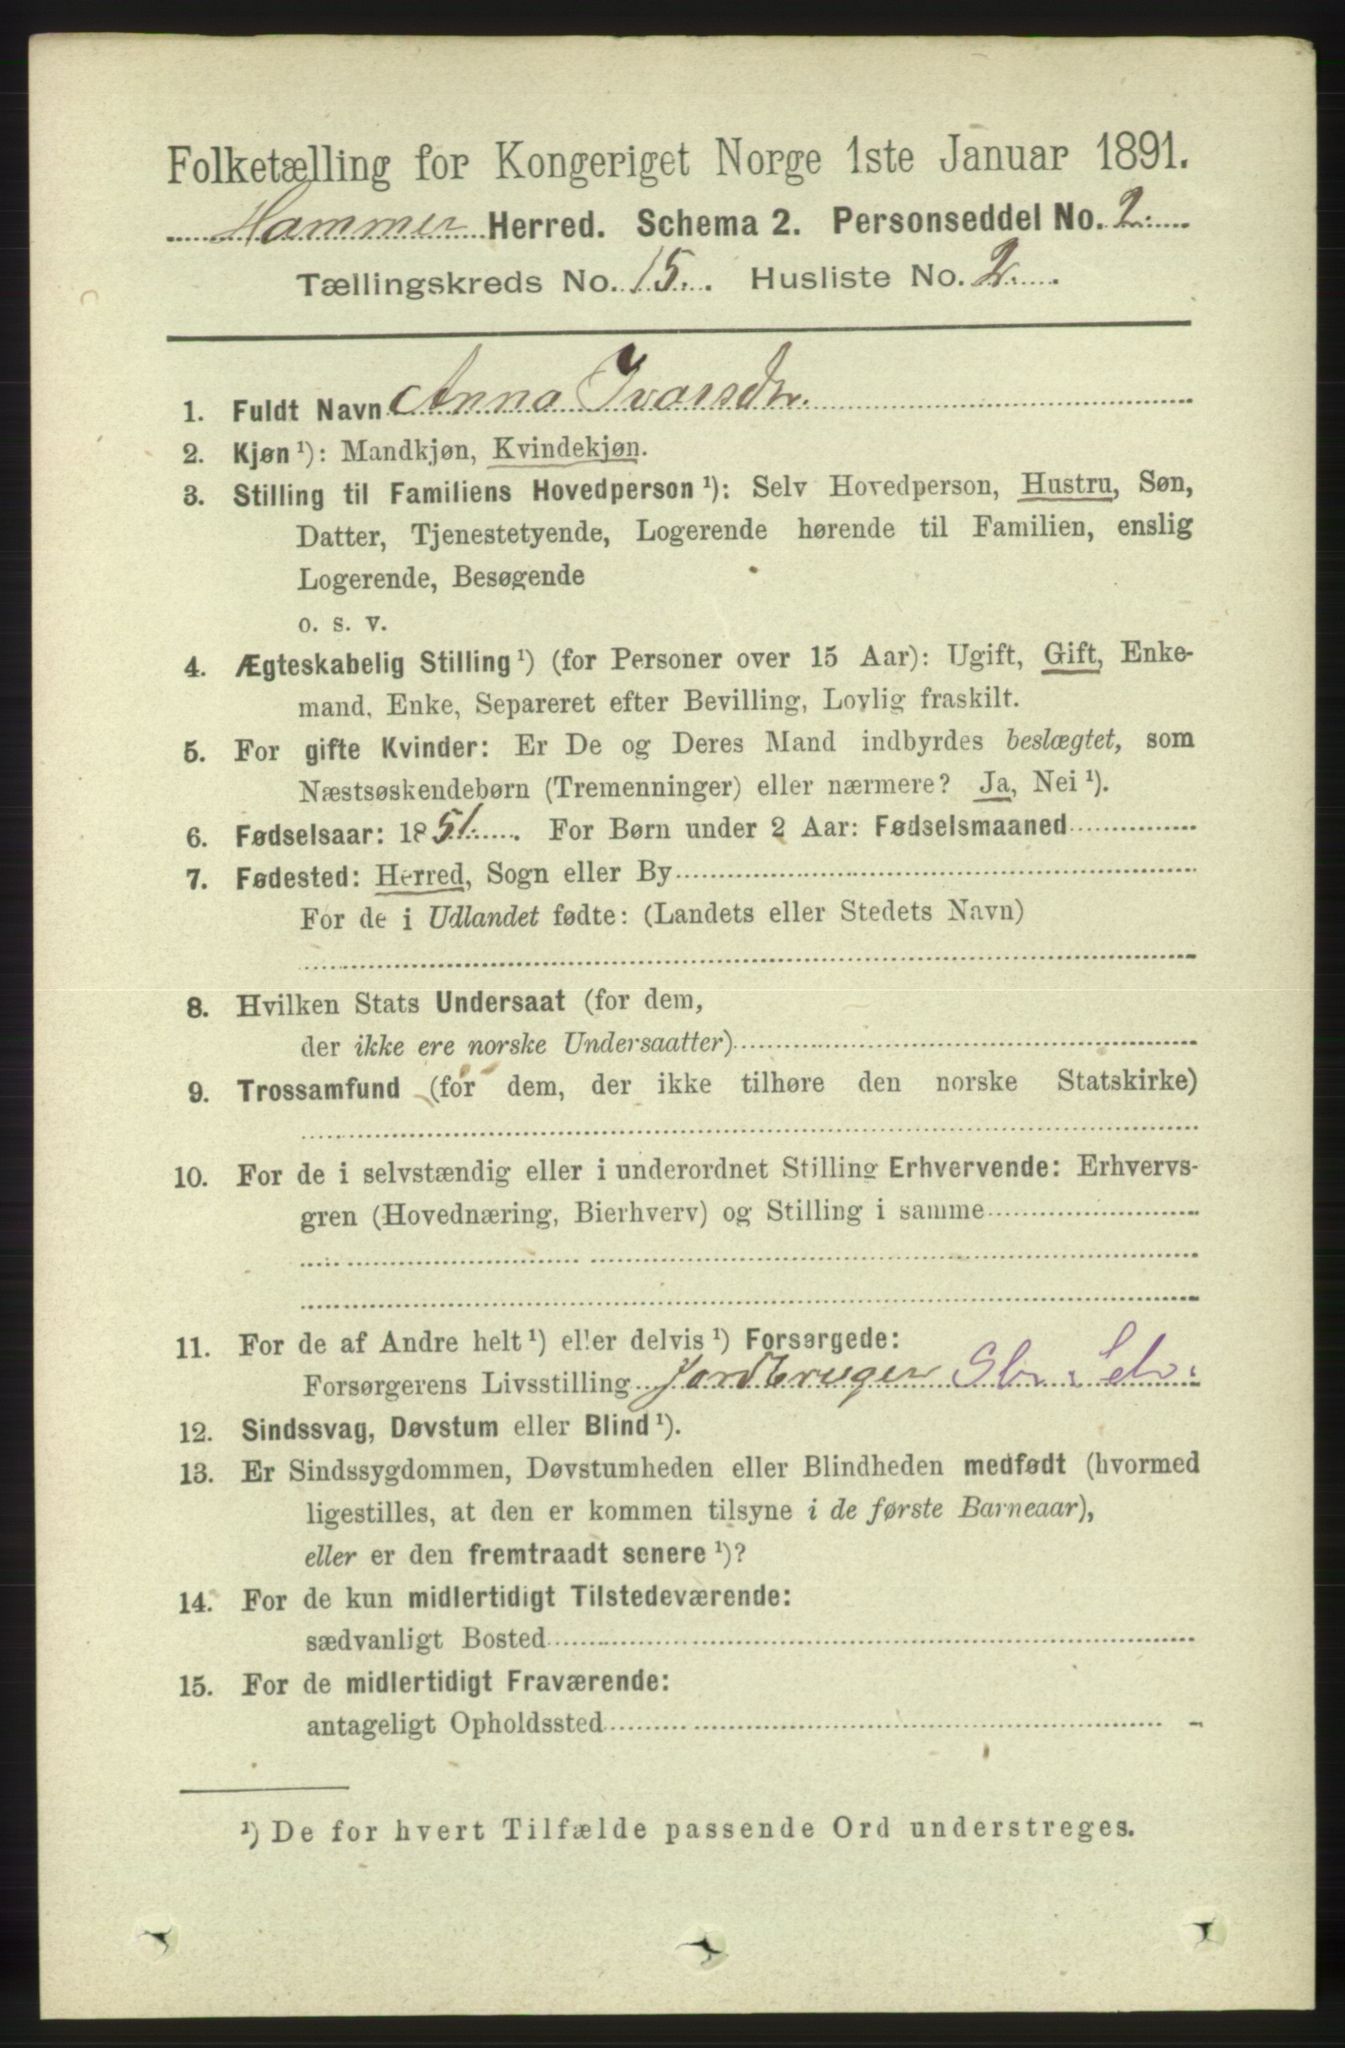 Folketælling for Kongeriget Norge 1ste Januar 1891.
Hammer Herred. Schema 2. Personseddel No. 2.
Tællingskreds No. 15. Husliste No. 2.
1. Fuldt Navn Anna Ivarsdtr.
2. Kjøn ¹): Mandkjøn, Kvindekjøn.
3. Stilling til Familiens Hovedperson ¹): Selv Hovedperson, Hustru, Søn,
Datter, Tjenestetyende, Logerende hørende til Familien, enslig
Logerende, Besøgende
o. s. v.
4. Ægteskabelig Stilling ¹) (for Personer over 15 Aar): Ugift, Gift, Enke-
mand, Enke, Separeret efter Bevilling, Lovlig fraskilt.
5. For gifte Kvinder: Er De og Deres Mand indbyrdes beslægtet, som
Næstsøskendebørn (Tremenninger) eller nærmere? Ja, Nei ¹).
6. Fødselsaar: 1851. For Børn under 2 Aar: Fødselsmaaned
7. Fødested: Herred, Sogn eller By
For de i Udlandet fødte: (Landets eller Stedets Navn)
8. Hvilken Stats Undersaat (for dem,
der ikke ere norske Undersaatter)
9. Trossamfund (for dem, der ikke tilhøre den norske Statskirke)
10. For de i selvstændig eller i underordnet Stilling Erhvervende: Erhvervs-
gren (Hovednæring, Bierhverv) og Stilling i samme
11. For de af Andre helt ¹) eller delvis ¹) Forsørgede:
Forsørgerens Livsstilling Jordbruger
12. Sindssvag, Døvstum eller Blind ¹).
13. Er Sindssygdommen, Døvstumheden eller Blindheden medfødt (hvormed
ligestilles, at den er kommen tilsyne i de første Barneaar),
eller er den fremtraadt senere ¹)?
14. For de kun midlertidigt Tilstedeværende:
sædvanligt Bosted
15. For de midlertidigt Fraværende:
antageligt Opholdssted
¹) De for hvert Tilfælde passende Ord understreges.